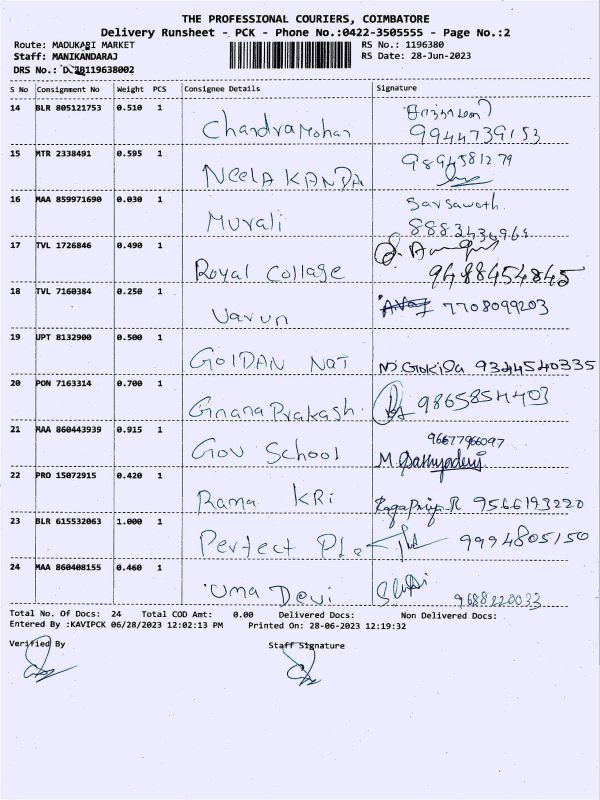 THE PROFESSIONAL COURIERS, COIMBATORE
Delivery Runsheet - PCK - Phone No.:0422-3505555 - Page No.:2
Route: MADUKARI MARKET RS No.: 1196380
Staff: MANIKANDARAJ RS Date: 28-Jun-2023
DRS No.:
S No Consignment No Weight PCS Consignee Details Signature
14 BLR 805121753 0.510 1 ChandraMohan 9944739153
15 MTR 2338491 0.595 1 NeelA KANDA 9894581279
16 MAA 859971690 0.030 1 Murali
17 TVL 1726846 0.490 1 Royal Collage 9488454845
18 TVL 7160384 0.250 1 Varun 7708099203
19 UPT 8132900 0.500 1 GOlDAN NAT 9344540335
20 PON 7163314 0.700 1 Gnana Prakash. 9865854403
21 MAA 860443939 0.915 1 Gov School 96677966097
M.
22 PRO 15072915 0.420 1 Rama KRi 9566193220
23 BLR 615532063 1.000 1 Perfect Pla 9994805150
24 MAA 860408155 0.460 1 Uma Devi 9688220033
Total No. Of Docs: 24 Total COD Amt: 0.00 Delivered Docs: Non Delivered Docs:
Entered By :KAVIPCK 06/28/2023 12:02:13 PM Printed On: 28-06-2023 12:19:32
Verified By Staff Signature